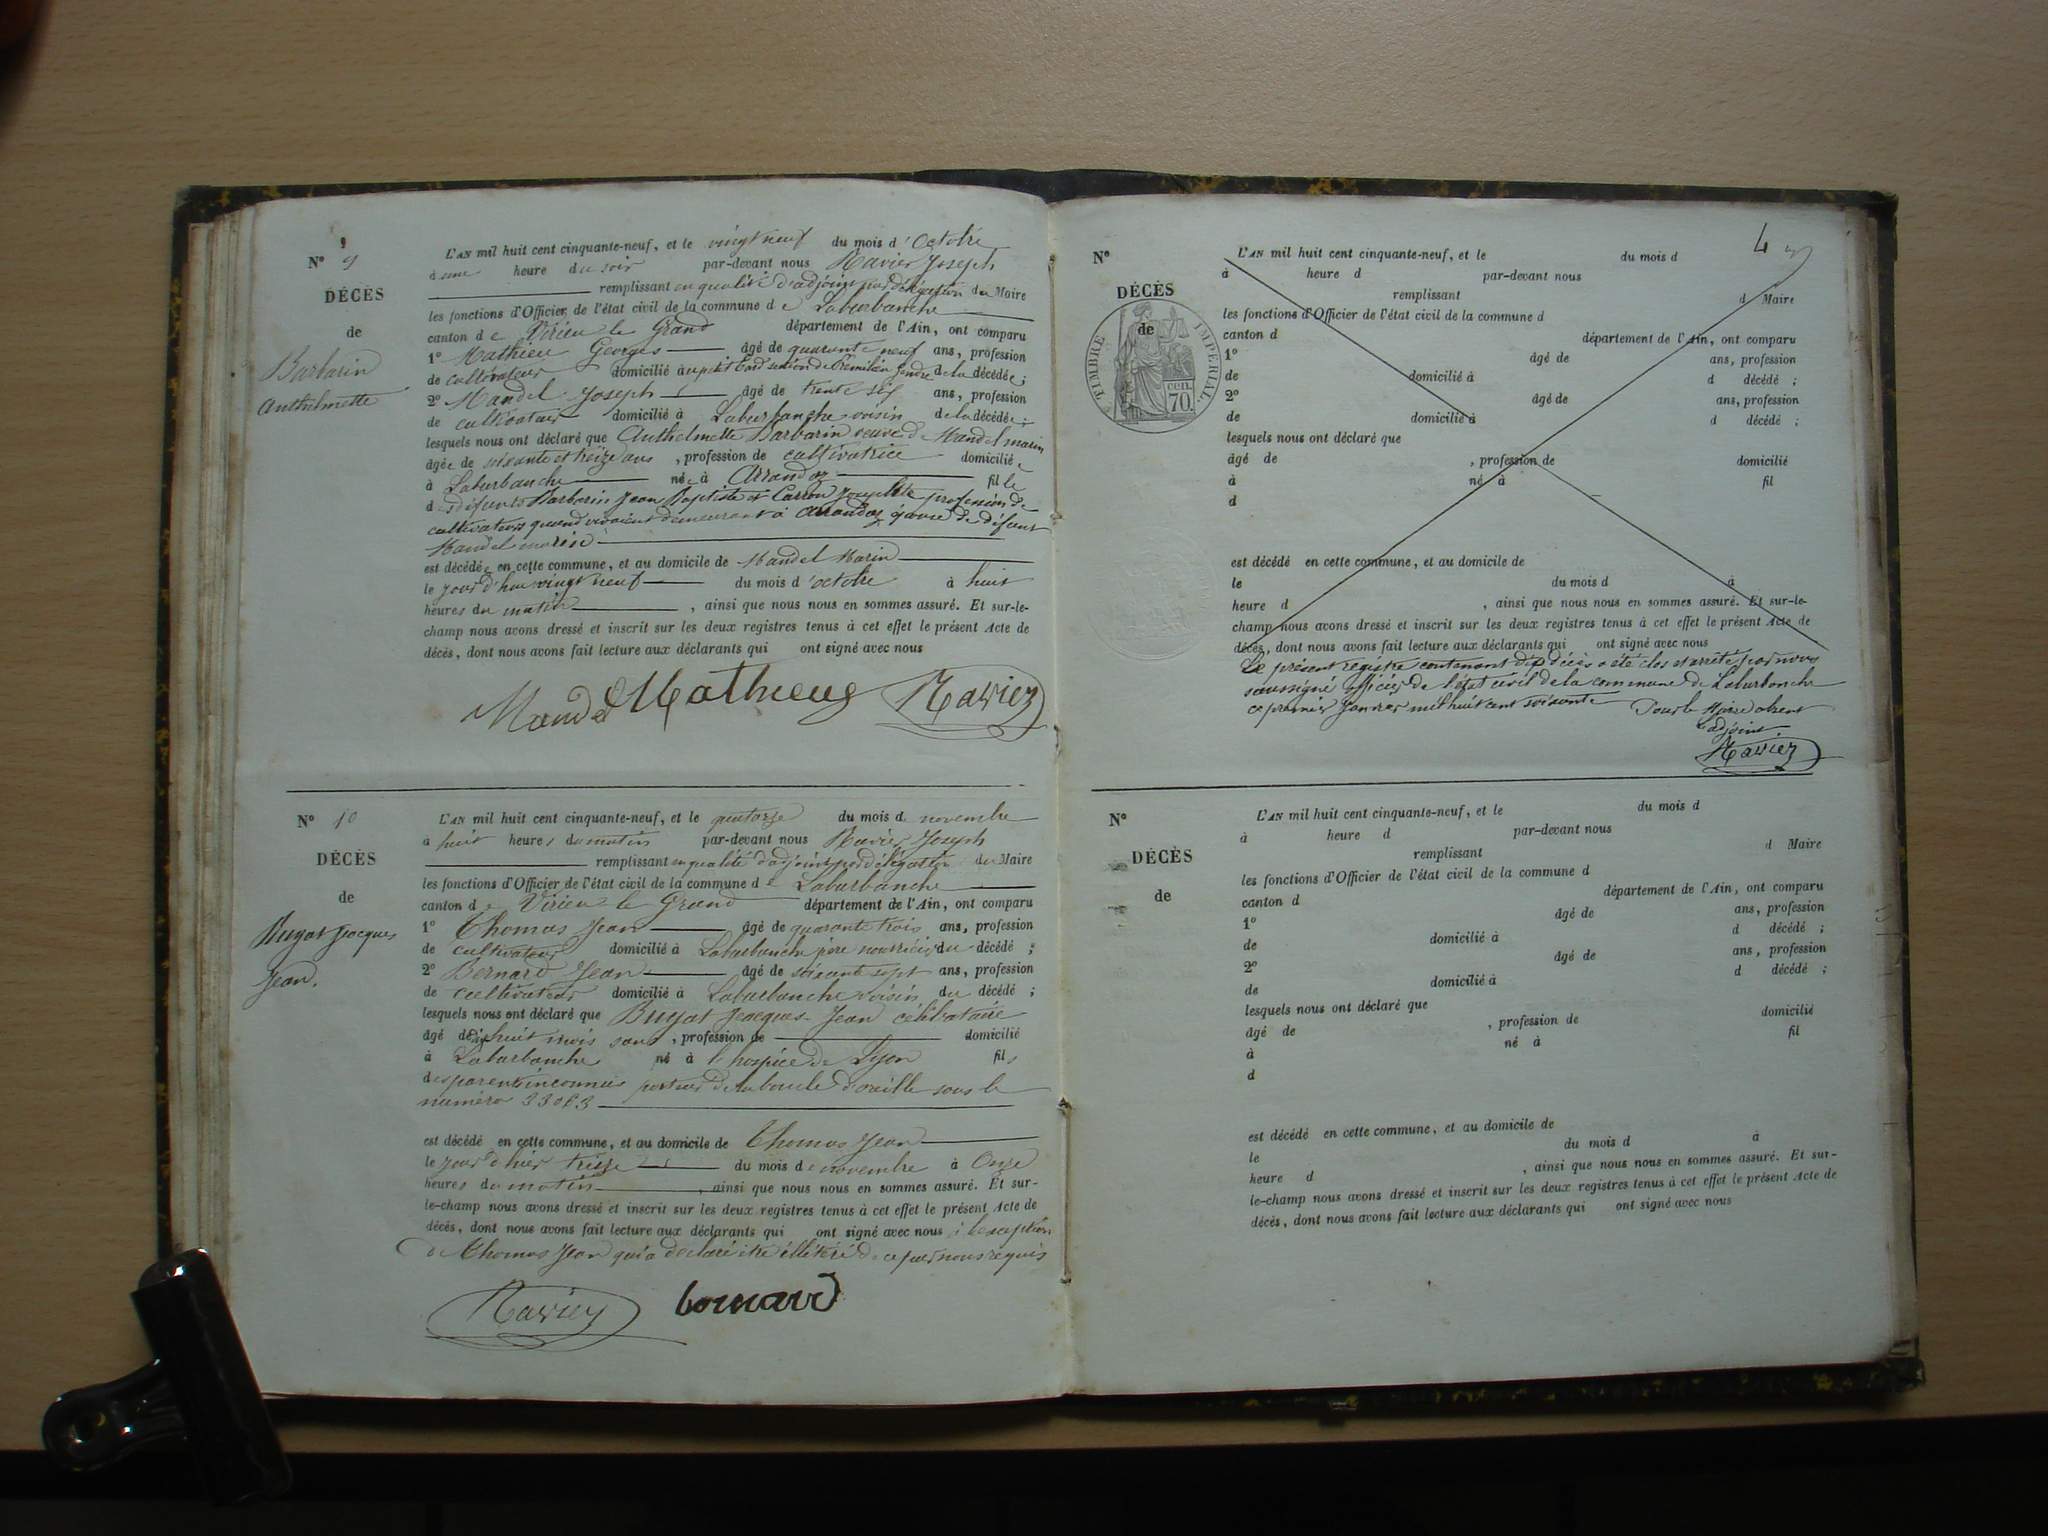 N° 9
DÉCÈS
de
Barbarin
Anthelmette
L'AN mil huit cent cinquante-neuf, et le vingt neuf du mois d'Octobre
à une heure du soir par-devant nous Ravier Joseph
remplissant en qualité d'adjoint par délégation du Maire
les fonctions d'Officier de l'état civil de la commune de Laburbanche
canton de Virieu le Grand département de l'Ain, ont comparu
1° Mathieu Georges âgé de quarante neuf ans, profession
de cultivateur domicilié à gendre de la décédée;
2° Mandel Joseph âgé de trente six ans, profession
de cultivateur domicilié à Laburbanche voisin de la décédée;
lesquels nous ont déclaré que Anthelmette Barbarin veuve de Mandel marin
âgée de soixante et treize ans, profession de cultivatrice domiciliée
à Laburbanche née à Arandas fille
des défunts Barbarin Jean Baptiste et Carron Josephte profession de
cultivateurs quand vivaient demeurant à Arandas veuve de défunt
Mandel marin
est décédée en cette commune, et au domicile de Mandel Marin
le jour d'hui vingt neuf du mois d'octobre à huit
heures du matin, ainsi que nous nous en sommes assuré. Et sur-le-
champ nous avons dressé et inscrit sur les deux registres tenus à cet effet le présent Acte de
décès, dont nous avons fait lecture aux déclarants qui ont signé avec nous
Mandel Mathieu Ravier
N° 10
DÉCÈS
de
Buyat Jacques
Jean.
L'AN mil huit cent cinquante-neuf, et le quatorze du mois de novembre
à huit heures du matin par-devant nous Ravier Joseph
remplissant en qualité d'adjoint par délégation du Maire
les fonctions d'Officier de l'état civil de la commune de Laburbanche
canton de Virieu le Grand département de l'Ain, ont comparu
1° Thomas Jean âgé de quarante trois ans, profession
de cultivateur domicilié à Laburbanche père nourricier du décédé;
2° Bernard Jean âgé de soixante sept ans, profession
de cultivateur domicilié à Laburbanche voisin du décédé;
lesquels nous ont déclaré que Buyat Jacques Jean célibataire
âgé de huit mois sans, profession de domicilié
à Laburbanche né à l'hospice de Lyon fils
des parents inconnus porteur de la boucle d'oreille sous le
numéro
est décédé en cette commune, et au domicile de Thomas Jean
le jour d'hier treize du mois de novembre à Onze
heures du matin, ainsi que nous nous en sommes assuré. Et sur-
le-champ nous avons dressé et inscrit sur les deux registres tenus à cet effet le présent Acte de
décès, dont nous avons fait lecture aux déclarants qui ont signé avec nous à l'exception
de Thomas Jean qui a déclaré être illétéré de ce par nous requis
Ravier bernard
4
N°
DÉCÈS
de
TIMBRE IMPÉRIAL
70 cen.
L'AN mil huit cent cinquante-neuf, et le du mois d
à heure d par-devant nous
remplissant d Maire
les fonctions d'Officier de l'état civil de la commune d
canton d département de l'Ain, ont comparu
1° âgé de ans, profession
de domicilié à d décédé;
2° âgé de ans, profession
de domicilié à d décédé;
lesquels nous ont déclaré que
âgé de, profession de domicilié
à né à fil
d
est décédé en cette commune, et au domicile de
le du mois d à
heure d, ainsi que nous nous en sommes assuré. Et sur-le-
champ nous avons dressé et inscrit sur les deux registres tenus à cet effet le présent Acte de
décès, dont nous avons fait lecture aux déclarants qui ont signé avec nous
Le présent registre contenant dix décès a été clos et arrêté par nous
soussigné officier de l'état civil de la commune de Laburbanche
ce premier Janvier mil huit cent soixante Pour le Maire absent
l'adjoint.
Ravier
N°
DÉCÈS
de
L'AN mil huit cent cinquante-neuf, et le du mois d
à heure d par-devant nous
remplissant d Maire
les fonctions d'Officier de l'état civil de la commune d
canton d département de l'Ain, ont comparu
1° âgé de ans, profession
de domicilié à d décédé;
2° âgé de ans, profession
de domicilié à d décédé;
lesquels nous ont déclaré que
âgé de, profession de domicilié
à né à fil
d
est décédé en cette commune, et au domicile de
le du mois d à
heure d, ainsi que nous nous en sommes assuré. Et sur-
le-champ nous avons dressé et inscrit sur les deux registres tenus à cet effet le présent Acte de
décès, dont nous avons fait lecture aux déclarants qui ont signé avec nous